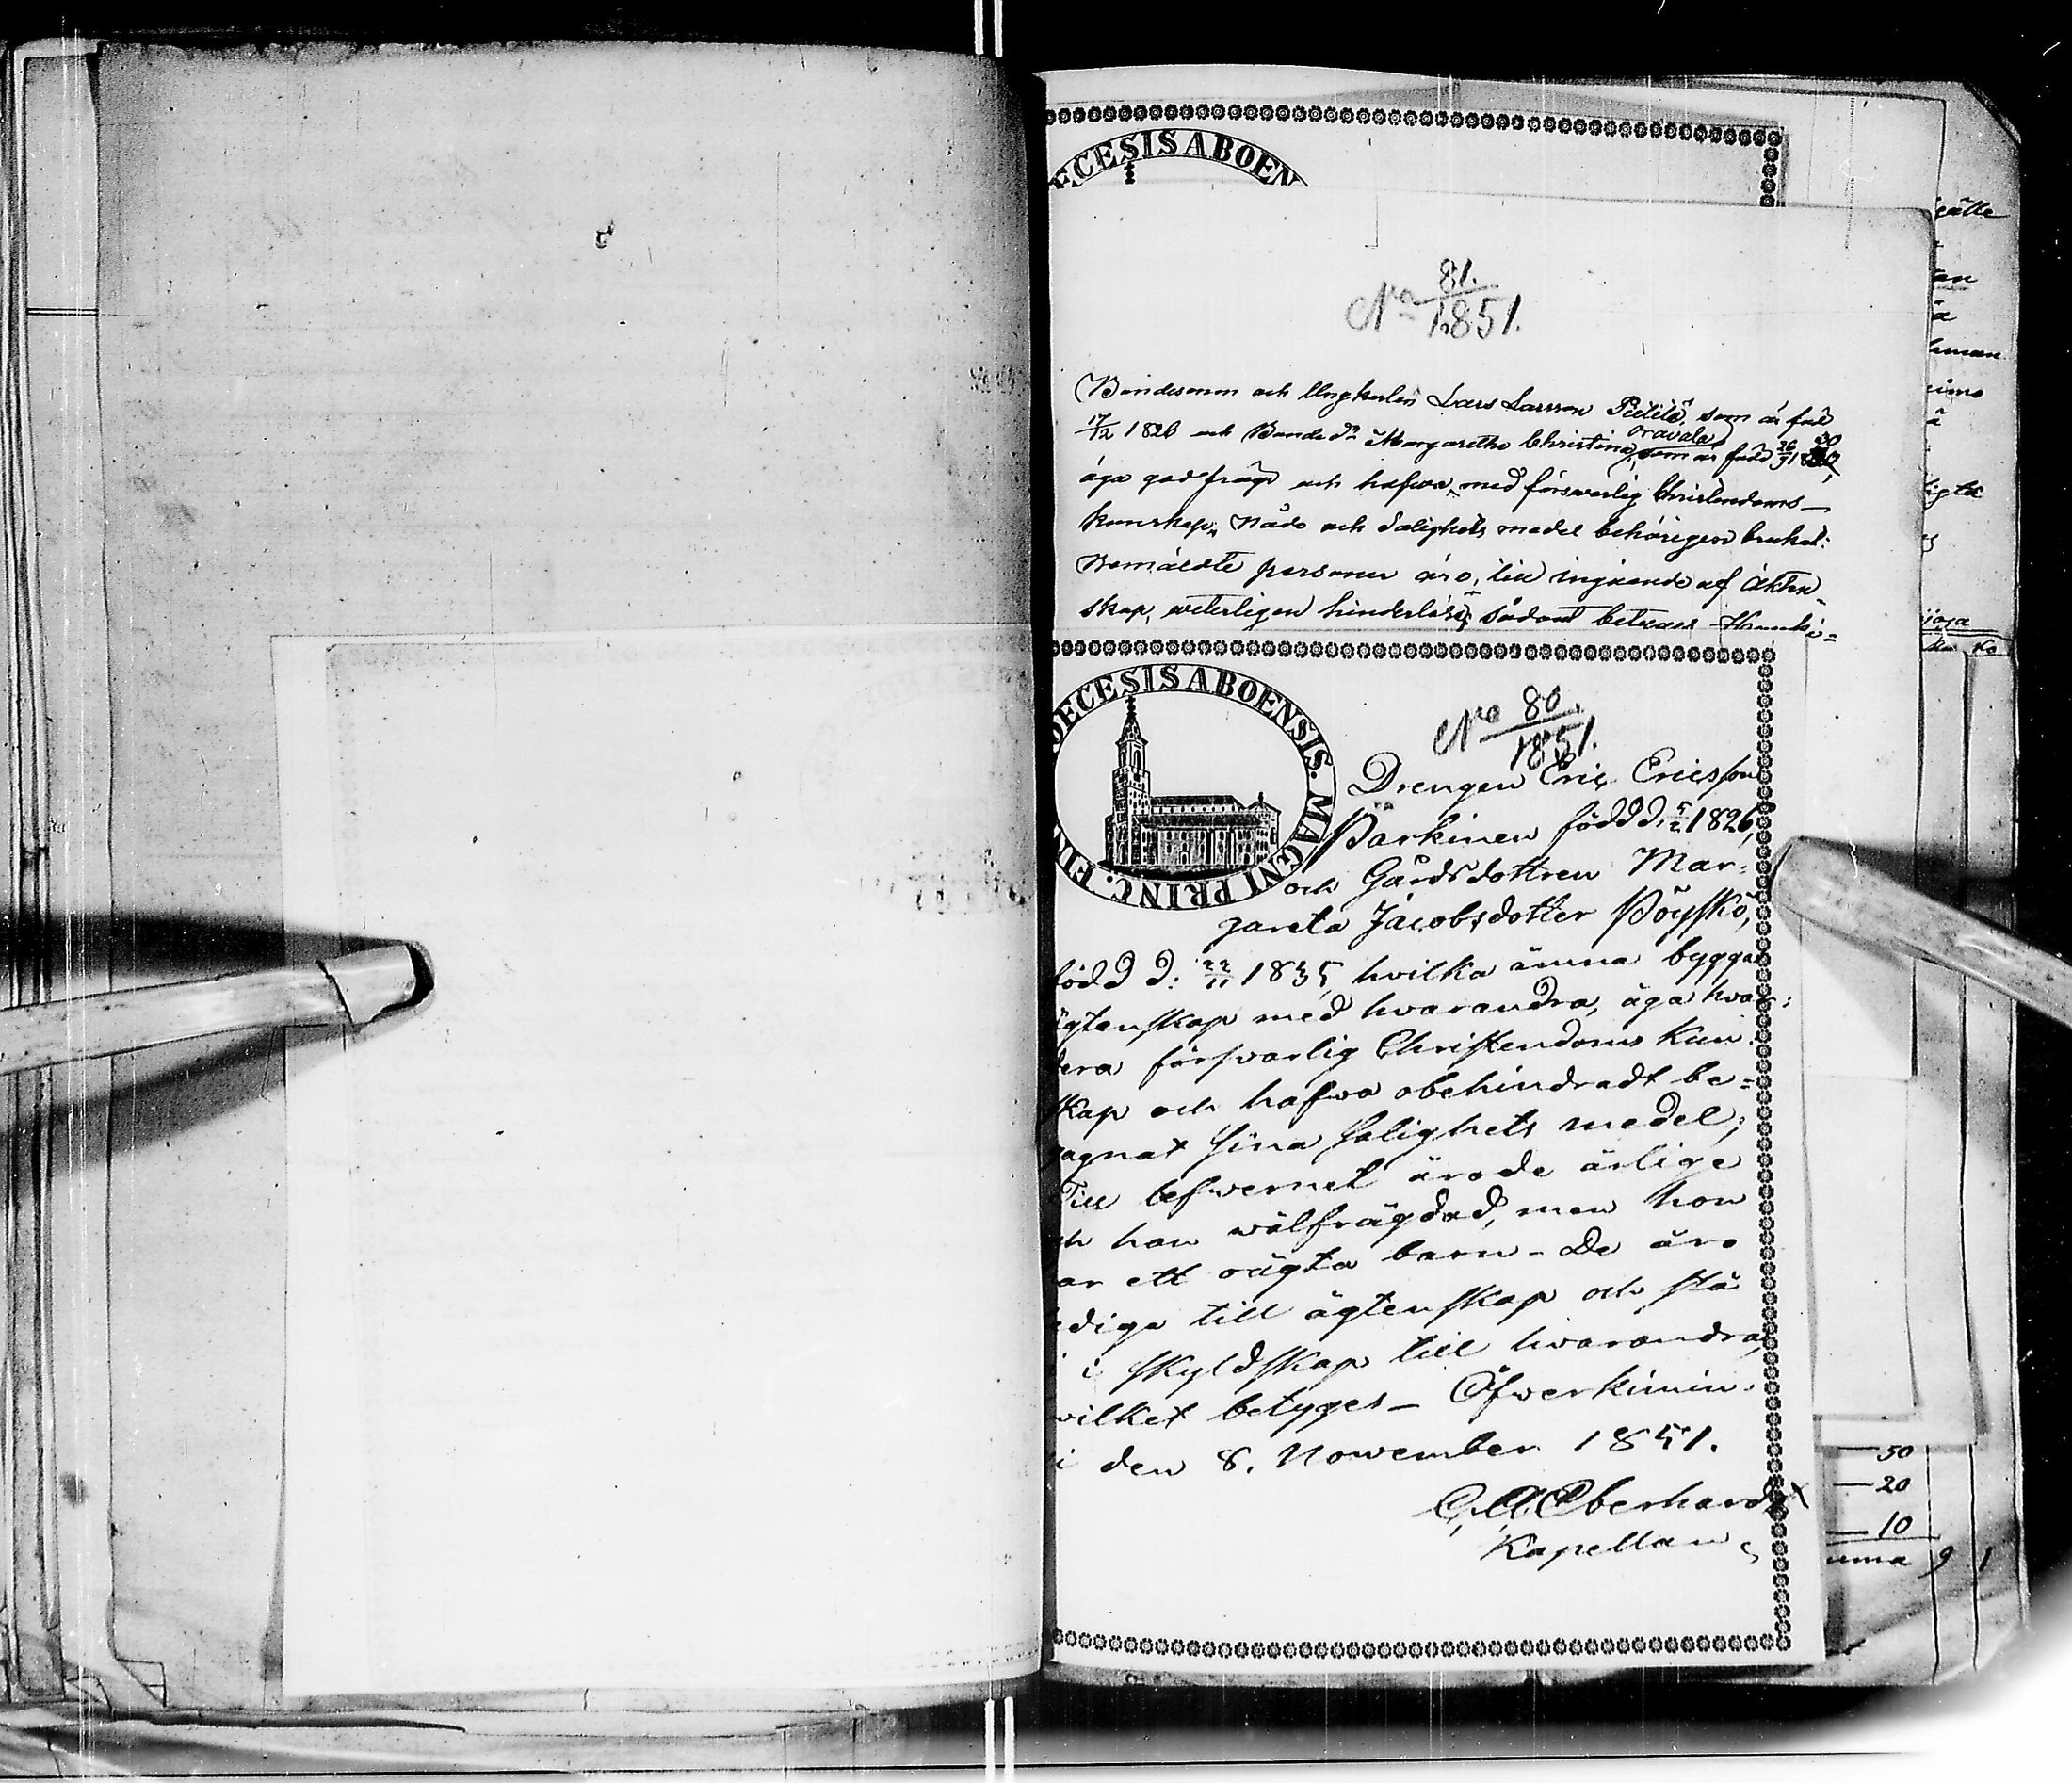 ECESIS ABOEN
No 81.
1851.
Bondesonen och Ungkarlen Lars Larsson Pietilä, som är född
17/12 1826 och Bonded:n Margaretha Christina Oravala, som är född 26/9 1830,
äga god frägd och hafva med förswarlig Christendoms-
kunskap, Nåde och Salighets medel behörigen brukat:
Bemäldte personer äro, till ingående af Äkten-
skap, weterligen hinderlöse; sådant betygas Hauki=
OECESIS ABOENSIS. MAGNI PRINC. FIN
No 80
1851.
Drengen Eric Ericsson
Parkinen född d. 5/2 1826,
och Gårdsdottren Mar=
gareta Jacobsdotter Pöyskö,
född d: 22/11 1835, hvilka ämna bygga
ägtenskap med hvarandra, äga hvar:
dera försvarlig Christendoms Kun:
skap och hafva obehindradt be=
gagnat sina salighets medel;
Till lefwernet äro de ärlige
ch han wälfrägdad, men hon
ar ett oägta barn - De äro
diga till ägtenskap och stå
i skyldskap till hvarandra,
vilket betyges - Öfwerkimin:
i den 8. November 1851.
G. A. Eberhardt
Kapellan
gälle
tan
ä
eman
ä
50
20
10
umma 9 1